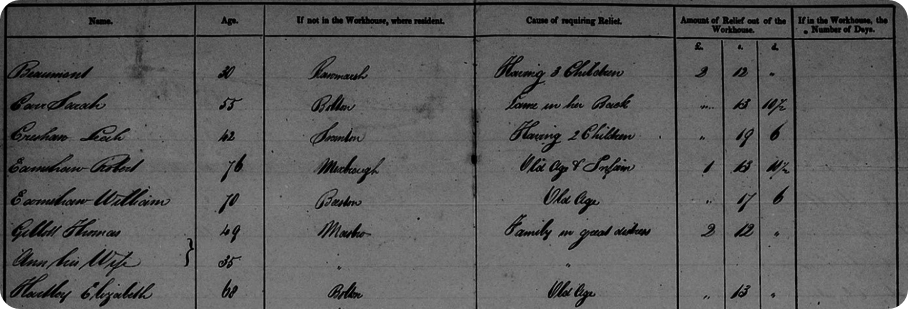 Name. Age. If not in the Workhouse, where resident. Cause of requiring Relief. Amount of Relief out of the Workhouse. If in the Workhouse, the Number of Days.
£. s. d.
Beaumont 30 Rawmarsh Having 3 Children 2 12 "
Carr Sarah 55 Bolton Lame in her Back " 13 10½
Leah 42 Having 2 Children " 19 6
Earnshaw Robert 76 Mexbrough Old Age & Infirm 1 13 10½
Earnshaw William 70 Old Age " 17 6
Gibbott Thomas 49 Masbro Family in great distress 2 12 "
Ann his Wife 35 " "
Hartley Elizabeth 68 Bolton Old Age " 13 "